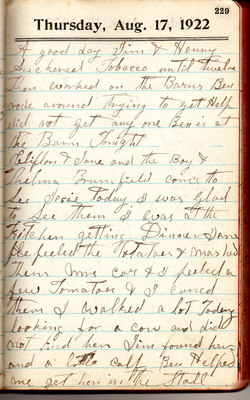 229
Thursday, Aug. 17, 1922
A good day Jim & Henny
Suckened Tobacco until twelve
then worked on the Barns Ben
rode around trying to get Help
did not get any one Ben is at
the Barn Tonight
& Jane and the Boy &
Thelma Brumfield come to
See Josie today I was glad
to See them I was at the
Kitchen getting Dinner & Jane
she peeled the Potatoes & mashed
them Mrs Cox & I peeled a
few Tomatoes & I caned
them I walked a lot Today
looking for a cow and did
not find her Jim found her
and a little calf Ben Helped
me get her in the Stall